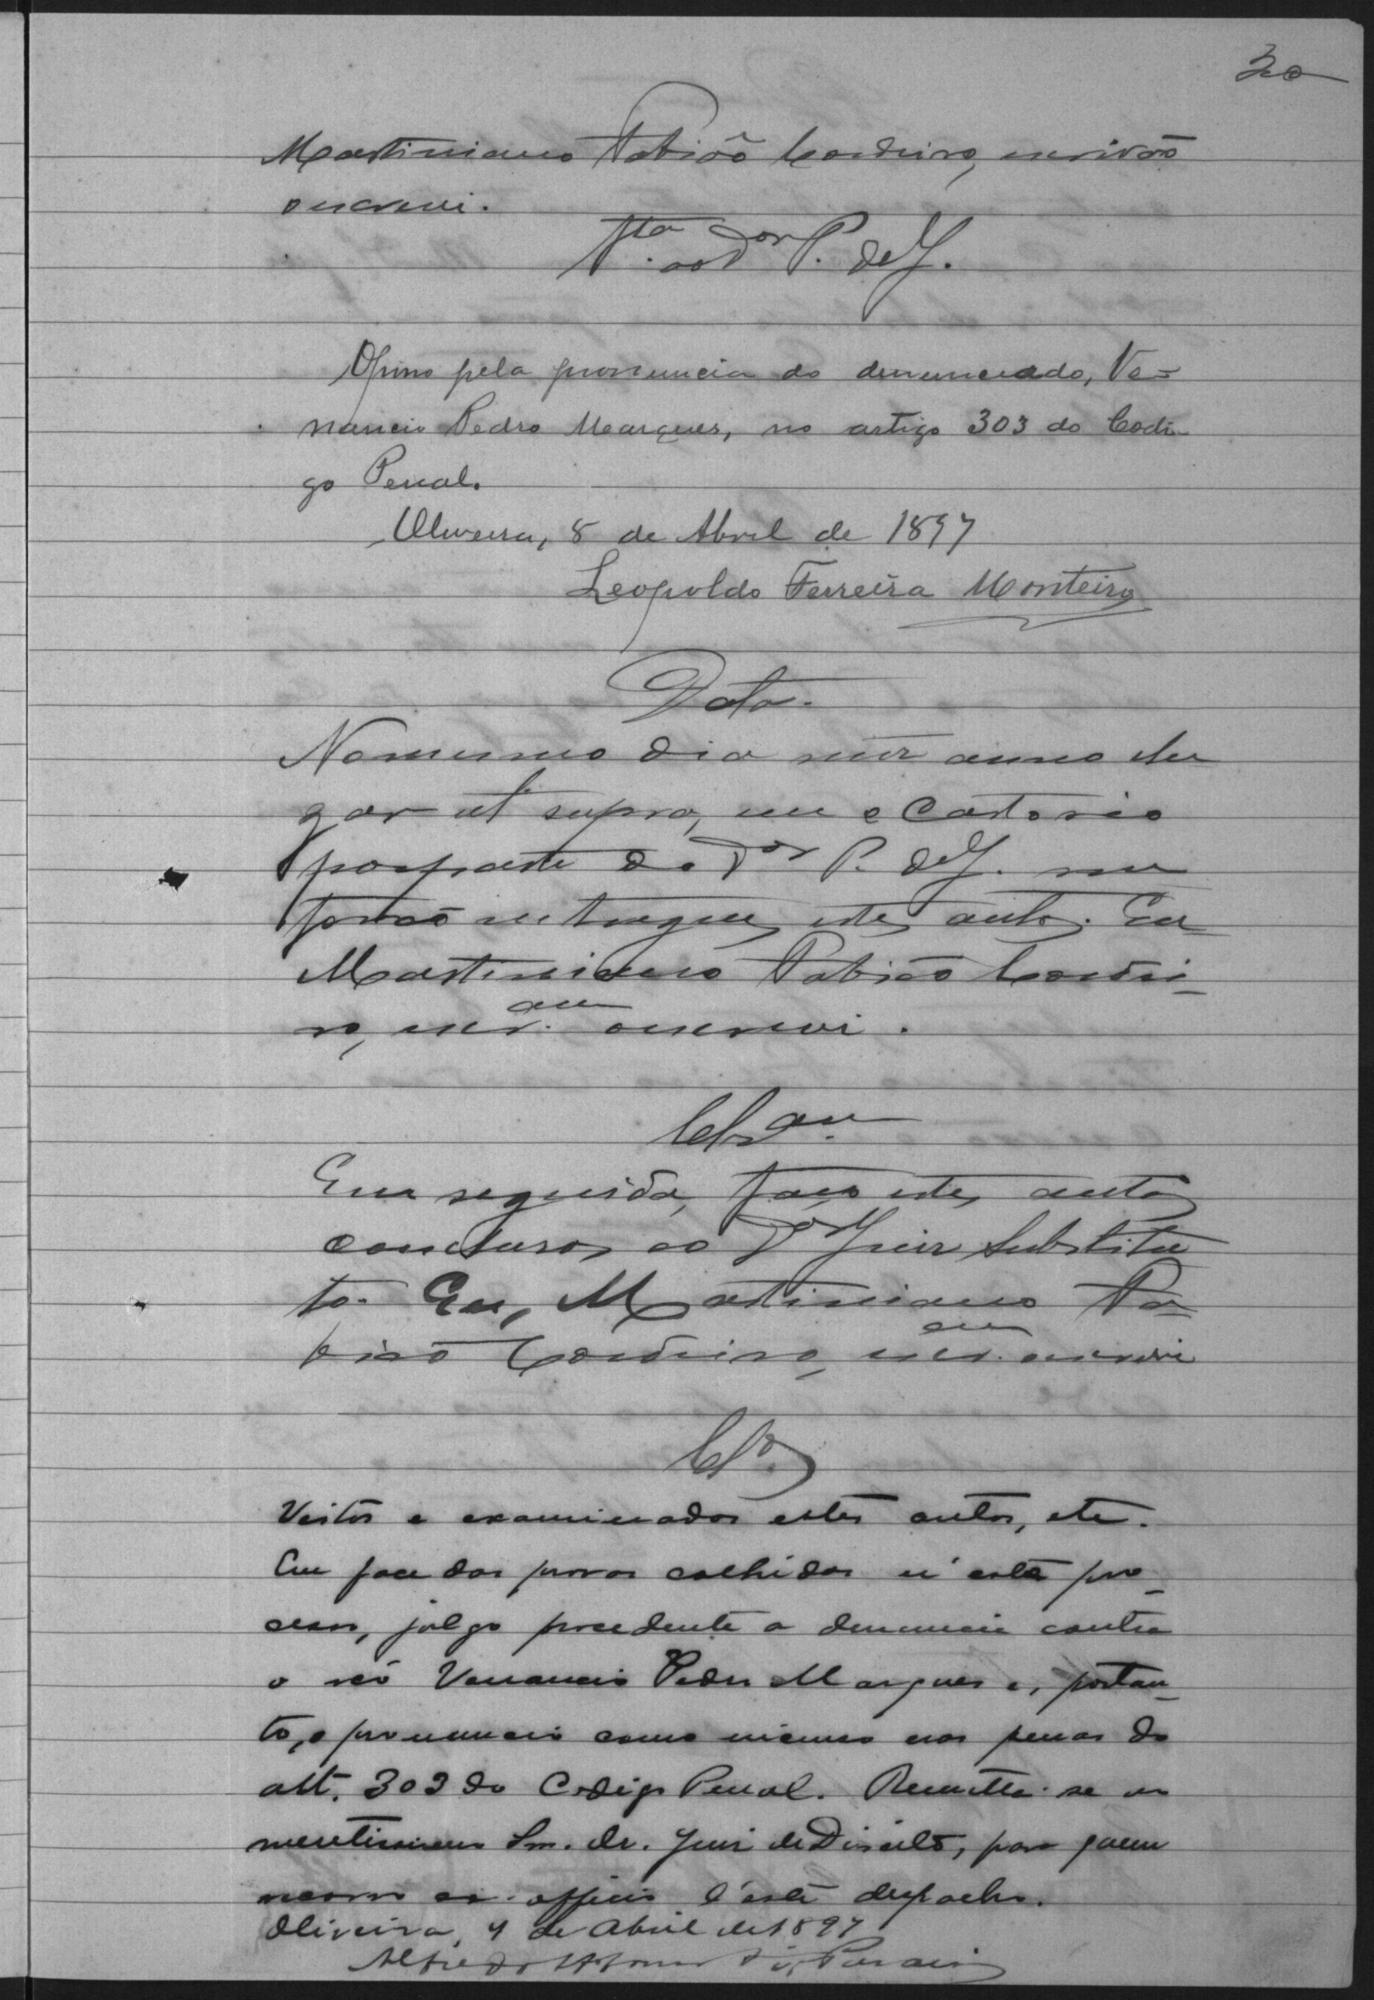 30
Martiniano Fabião Cordeiro, escrivão
o escrevi.
V.ta ao Dor P. de J.
Opino pela pronuncia do denunciado, Ve-
nancio Pedro Marques, no artigo 303 do Codi-
go Penal.
Oliveira, 8 de Abril de 1897
Leopoldo Ferreira Monteiro
Data.
No mesmo dia mez anno e lu
gar ut supra, em o Cartorio
por parte do Dor P. de J. me
forão entregues estes autos. Eu
Martiniano Fabião Cordei-
ro, escr.am o escrevi.
Cls.am
Em seguida, faço estes autos
conclusos ao Dor Juiz Substitu
to. Eu, Martiniano Fa-
bião Cordeiro, escr.am o escrevi
Cls.
Vistos e examinados estes autos, etc.
Em face das provas colhidas n'este pro-
cesso, julgo procedente a denuncia contra
o réo Venancio Pedro Marques e, portan-
to, o pronuncio como incurso nas penas do
art. 303 do Codigo Penal. Remetta-se ao
meretissimo Snr. dr. Juiz de Direito, para quem
recorro ex-officio d'este despacho.
Oliveira, 9 de Abril de 1897
Alfredo